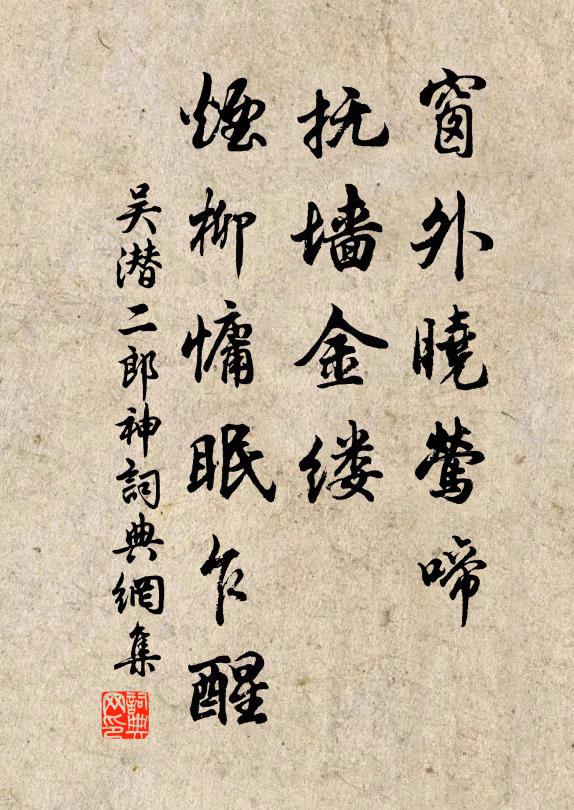 窗外曉鶯啼
抚墙金缕
煙柳慵眠乍醒
吴潜二郎神詞典網集
詞典网印